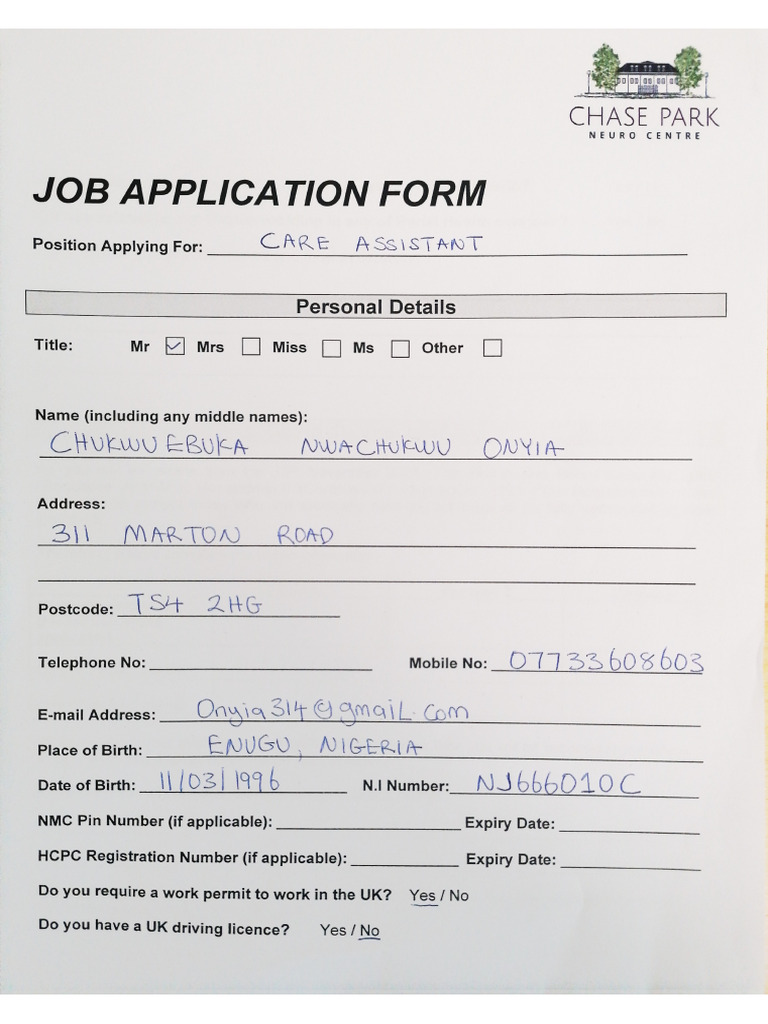 CHASE PARK
NEURO CENTRE
JOB APPLICATION FORM
Position Applying For: CARE ASSISTANT
Personal Details
Title: Mr ✓ Mrs Miss Ms Other
Name (including any middle names):
CHUKWUEBUKA NWACHUKWU ONYIA
Address:
311 MARTON ROAD
Postcode: TS4 2HG
Telephone No: Mobile No: 07733608603
E-mail Address: Onyia314@gmail.com
Place of Birth: ENUGU, NIGERIA
Date of Birth: 11/03/1996 N.I Number: NJ666010C
NMC Pin Number (if applicable): Expiry Date:
HCPC Registration Number (if applicable): Expiry Date:
Do you require a work permit to work in the UK? Yes / No
Do you have a UK driving licence? Yes / No